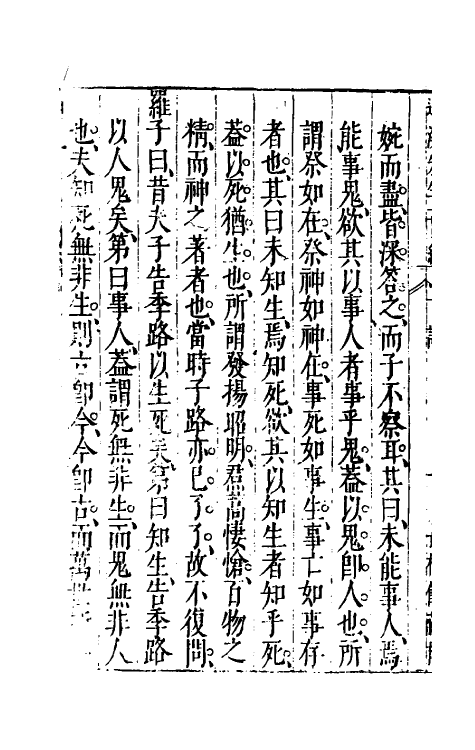 婉而盡皆深答之而子不察耳其曰未能事人焉
能事鬼欲其以事人者事乎鬼蓋以鬼卽人也所
謂祭如在祭神如神在事死如事生事亡如事存
者也其曰未知生焉知死欲其以知生者知乎死
蓋以死猶生也所謂發揚昭明焄蒿悽愴百物之
精而神之著者也當時子路亦已了了故不復問
羅子曰昔夫子告季路以生死矣第曰知生告季路
以人鬼矣第曰事人蓋謂死無非生而鬼無非人
也夫知死無非生則古卽今今卽古而萬世